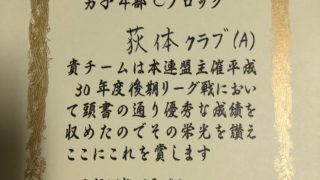 男子4部Cブロック
荻体クラブ(A)
貴チームは本連盟主催平成
30年度後期リーグ戦におい
て頭書の通り優秀な成績を
収めたのでその栄光を讃え
ここにこれを賞します